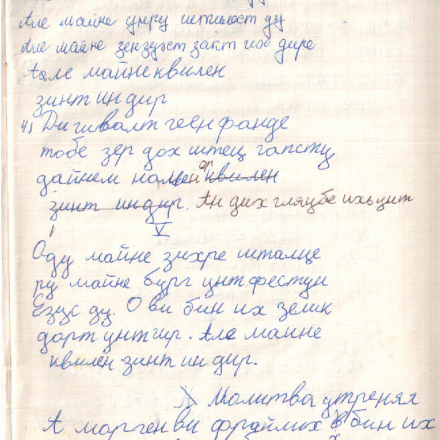 Але майне унру штильст ду
Але майне зензухт закт гое дире
Але майне квилен
зинт ин дир
4) Ди гивалт геен фанде
тобе зер дох штец гапсту
дайнем намен др квилен
зинт ин дир. Ан дих гляубе ихь цит
V
О ду майне зихре шталце
ру майне бург унт фестун
Езус ду. О ви бин их зелик
дорт унтир. Але майне
квилен зинт ин дир.
Молитва утреняя
А морген ви фрай мих бин их